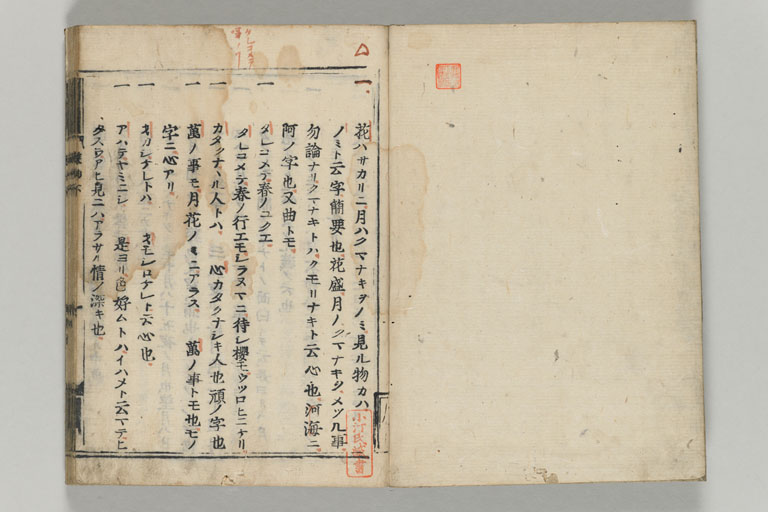 一 花ハサカリニ月ハクマナキヲノミ見ル物カハ
ノミト云字簡要也花盛月ノクマナキヲメツル事
勿論ナリクマナキトハクモリナキト云心也河海ニ
阿ノ字也又曲トモ
一 タレコメテ春ノユクエ
タレコメテ春ノ行エモシラヌマニ待シ櫻モウツロヒニケリ
一 カタクナヽル人トハ 心カタクナシキ人也頑ノ字也
一 萬ノ事モ月花ノミニアラス 萬ノ事トモ也モノ
字ニ心アリ
一 オカシケレトハ オモシロケレト云心也
一 是ヨリ色好ムトハイハメト云マテヒ
見ニハアラサル情ノ深キ也